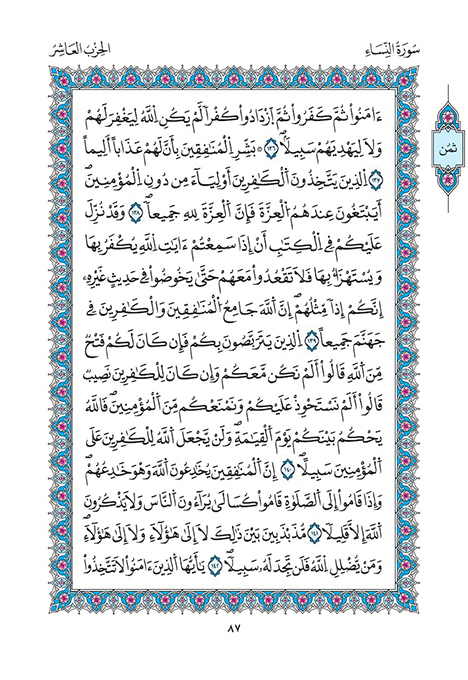 سُورَةُ النِّسَاءِ
الحِزْبُ العَاشِرُ
ثمُن
ءَامَنُواْ ثُمَّ كَفَرُواْ ثُمَّ اَزْدَادُواْ كُفْراً لَّمْ يَكُنِ اِللَّهُ لِيَغْفِرَ لَهُمْ
وَلَا لِيَهْدِيَهُمْ سَبِيلاًۖ ١٣٦ بَشِّرِ اِلْمُنَٰفِقِينَ بِأَنَّ لَهُمْ عَذَاباً أَلِيماً
١٣٧ اِلذِينَ يَتَّخِذُونَ اَلْكَٰفِرِينَ أَوْلِيَآءَ مِن دُونِ اِلْمُؤْمِنِينَۖ
أَيَبْتَغُونَ عِندَهُمُ اُلْعِزَّةَ فَإِنَّ اَلْعِزَّةَ لِلهِ جَمِيعاًۖ ١٣٨ وَقَدْ نُزِّلَ
عَلَيْكُمْ فِے اِلْكِتَٰبِ أَنِ اِذَا سَمِعْتُمُ ءَايَٰتِ اِللَّهِ يُكْفَرُ بِهَا
وَيُسْتَهْزَأُ بِهَا فَلَا تَقْعُدُواْ مَعَهُمْ حَتَّىٰ يَخُوضُواْ فِے حَدِيثٍ غَيْرِهِۦٓ
إِنَّكُمُ إِذاً مِّثْلُهُمُۖ إِنَّ اَللَّهَ جَامِعُ اُلْمُنَٰفِقِينَ وَالْكَٰفِرِينَ فِے
جَهَنَّمَ جَمِيعاً ١٣٩ اِلذِينَ يَتَرَبَّصُونَ بِكُمْ فَإِن كَانَ لَكُمْ فَتْحٌ
مِّنَ اَللَّهِ قَالُواْ أَلَمْ نَكُن مَّعَكُمْ وَإِن كَانَ لِلْكَٰفِرِينَ نَصِيبٌ
قَالُواْ أَلَمْ نَسْتَحْوِذْ عَلَيْكُمْ وَنَمْنَعْكُم مِّنَ اَلْمُؤْمِنِينَۖ فَاللَّهُ
يَحْكُمُ بَيْنَكُمْ يَوْمَ اَلْقِيَٰمَةِۖ وَلَنْ يَّجْعَلَ اَللَّهُ لِلْكَٰفِرِينَ عَلَى
اَلْمُؤْمِنِينَ سَبِيلاًۖ ١٤٠ إِنَّ اَلْمُنَٰفِقِينَ يُخَٰدِعُونَ اَللَّهَ وَهُوَ خَٰدِعُهُمْۖ
وَإِذَا قَامُواْ إِلَى اَلصَّلَوٰةِ قَامُواْ كُسَالَىٰ يُرَآءُونَ اَلنَّاسَ وَلَا يَذْكُرُونَ
اَللَّهَ إِلَّا قَلِيلاً ١٤١ مُّذَبْذَبِينَ بَيْنَ ذَٰلِكَ لَآ إِلَىٰ هَٰٓؤُلَآءِ وَلَآ إِلَىٰ هَٰٓؤُلَآءِۖ
وَمَنْ يُّضْلِلِ اِللَّهُ فَلَن تَجِدَ لَهُۥ سَبِيلاًۖ ١٤٢ يَٰٓأَيُّهَا اَلذِينَ ءَامَنُواْ لَا تَتَّخِذُواْ
٨٧